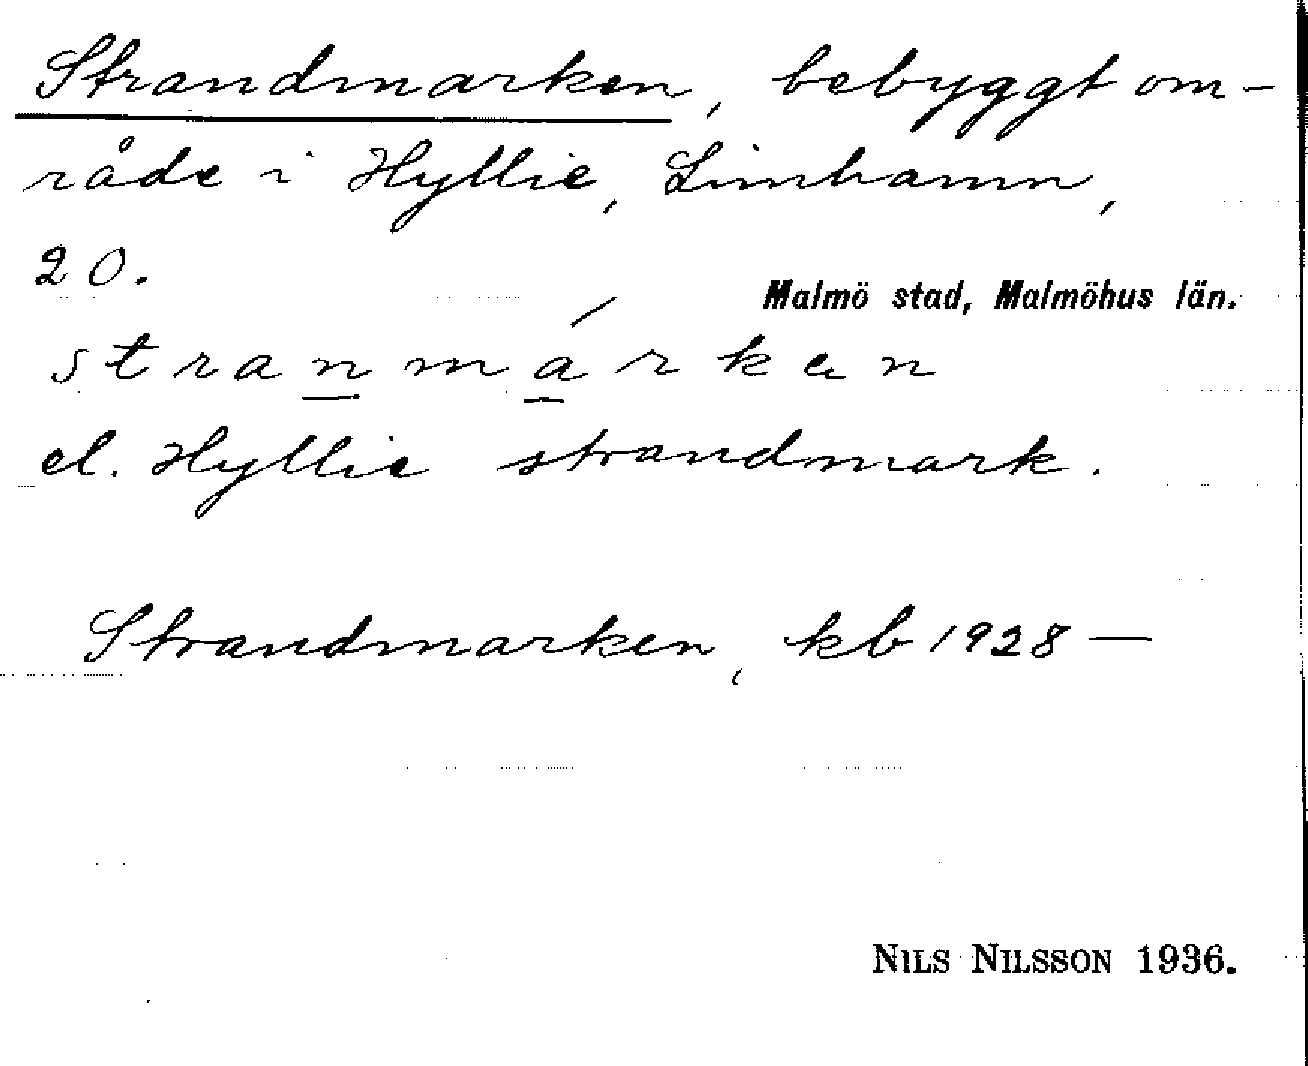 Strandmarken, bebyggt om-
råde i Hyllie, Limhamn,
20.
Malmö stad, Malmöhus län.
stranmárkan
el. Hyllie strandmark.
Strandmarken, kb 1928—
NILS NILSSON 1936.